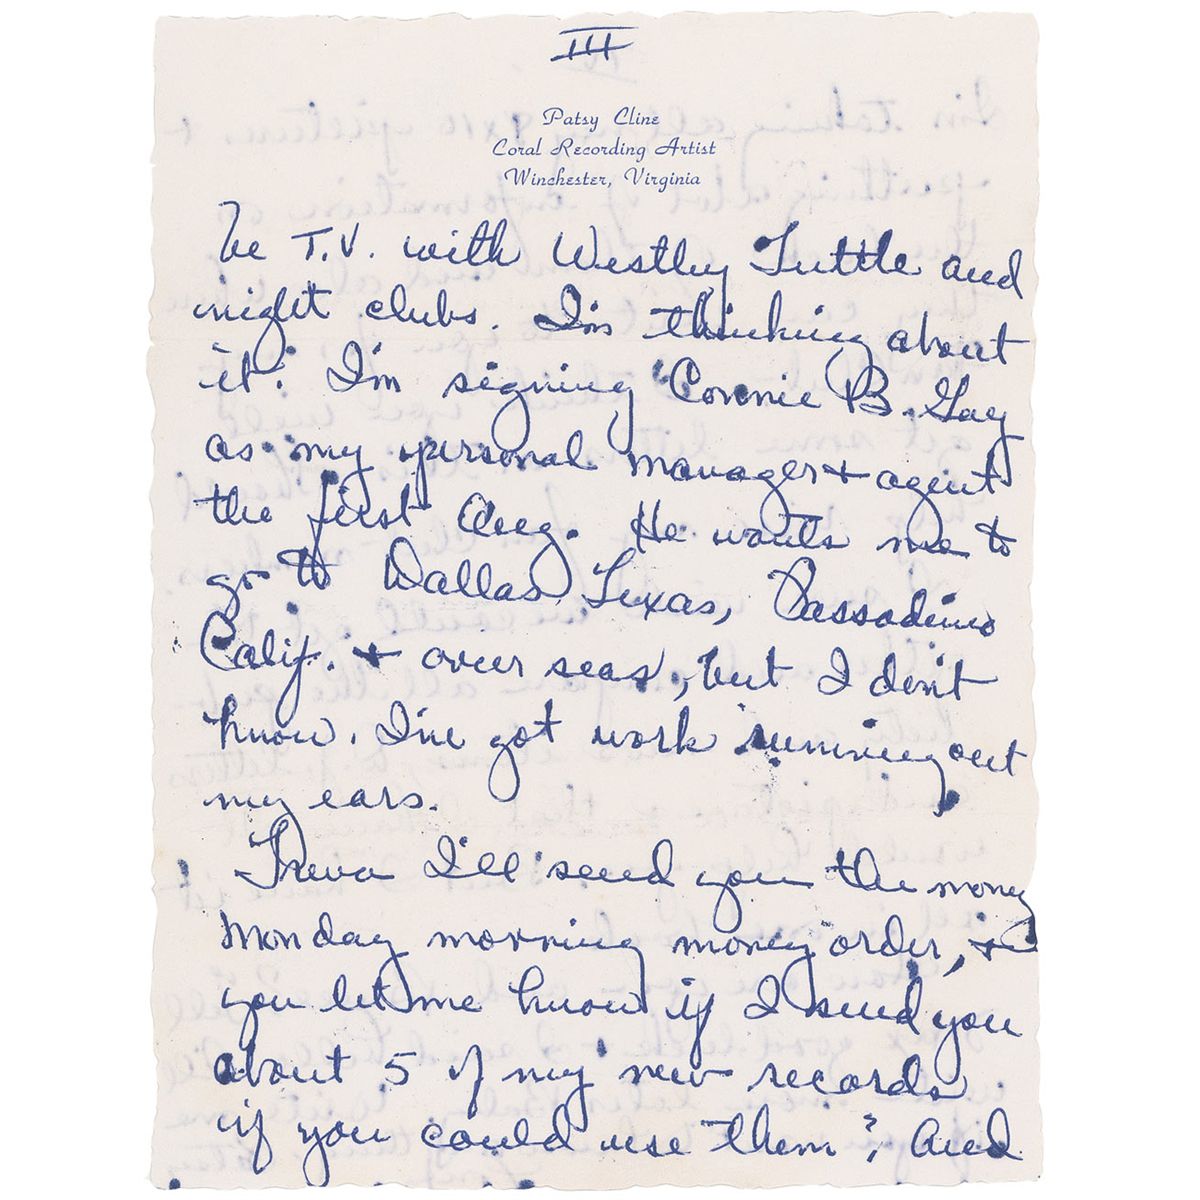 III
Patsy Cline
Coral Recording Artist
Winchester, Virginia
be T.V. with Westley Tuttle and
night clubs. I'm thinking about
it. I'm signing "Connie B. Gay
as my personal manager + agent
the first Aug. He wants me to
go to Dallas, Texas, Passadino
Calif. + over seas, but I don't
know. I've got work running out
my ears.
Treva I'll send you the money
Monday morning money order, +
you let me know if I send you
about 5 of my new records
if you could use them? And